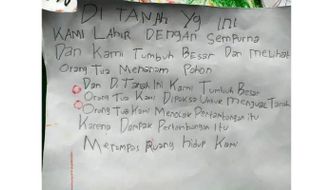 DI TANAH Yg INI
KAMI LAHIR DENGAN SEMPURNA
DAN KAMI TUMBUH BESAR DAN MELIHAT
ORANG TUA MENANAM POHON
DAN DI TANAH INI KAMI TUMBUH BESAR
ORANG TUA KAMI DIPAKSA UNTUK MENJUAL TANAH
ORANG TUA KAMI MENOLAK PERTAMBANGAN ITU
KARENA DAMPAK PERTAMBANGAN ITU
MERAMPAS RUANG HIDUP KAMI